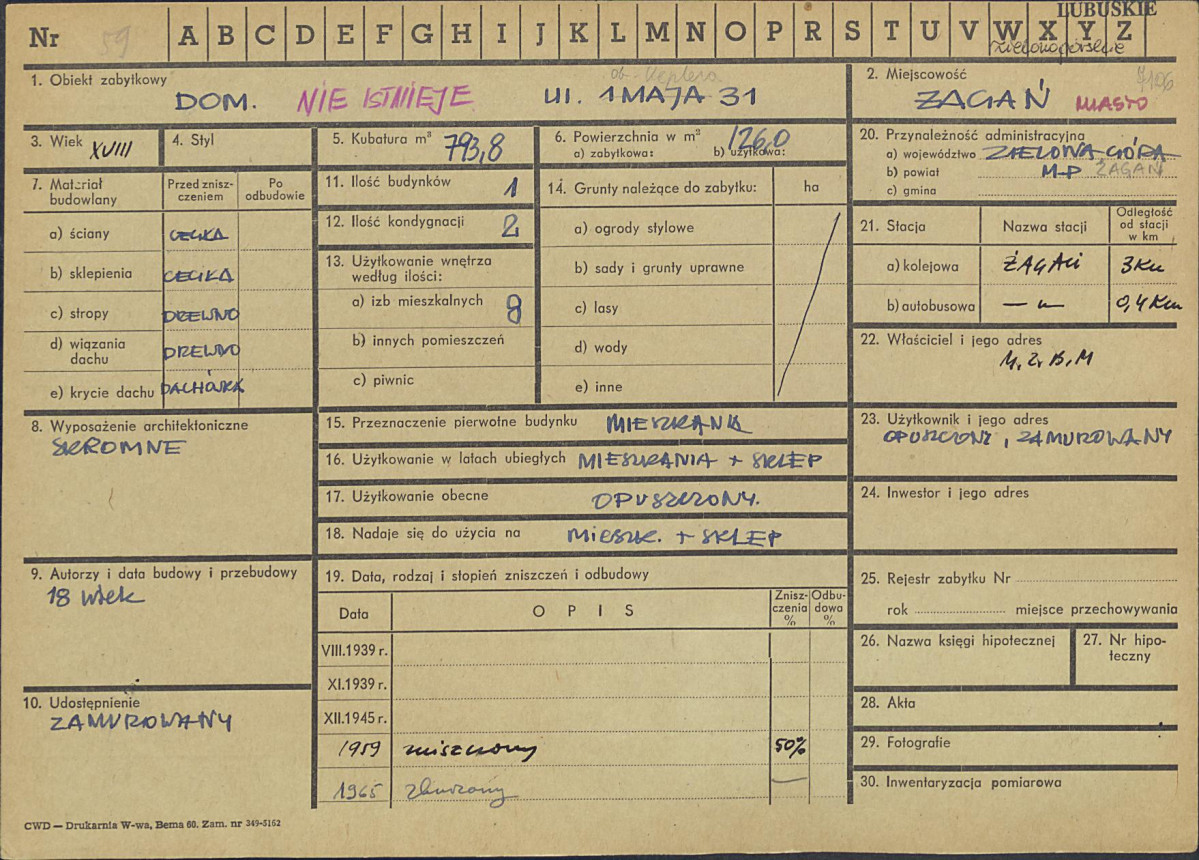 LUBUSKIE
Nr 59 A B C D E F G H I J K L M N O P R S T U V W X Y Z
zielonogórskie
1. Obiekt zabytkowy
ob. Keplera
DOM. NIE ISTNIEJE ul. 1 MAJA 31
2. Miejscowość
ŻAGAŃ MIASTO
3. Wiek XVIII
4. Styl
5. Kubatura m³ 793,8
6. Powierzchnia w m² 126,0
a) zabytkowa: b) użytkowa:
20. Przynależność administracyjna
a) województwo ZIELONA GÓRA
b) powiat M-P ŻAGAŃ
c) gmina
7. Materiał budowlany
Przed zniszczeniem
Po odbudowie
a) ściany CEGŁA
b) sklepienia CEGŁA
c) stropy DREWNO
d) wiązania dachu DREWNO
e) krycie dachu DACHÓWKA
11. Ilość budynków 1
12. Ilość kondygnacji 2
13. Użytkowanie wnętrza
według ilości:
a) izb mieszkalnych 8
b) innych pomieszczeń
c) piwnic
14. Grunty należące do zabytku: ha
a) ogrody stylowe
b) sady i grunty uprawne
c) lasy
d) wody
e) inne
21. Stacja Nazwa stacji Odległość od stacji w km
a) kolejowa ŻAGAŃ 3 Km
b) autobusowa — „ 0,4 Km
22. Właściciel i jego adres
M.Z.B.M
8. Wyposażenie architektoniczne
SKROMNE
15. Przeznaczenie pierwotne budynku MIESZKANIA
16. Użytkowanie w latach ubiegłych MIESZKANIA + SKLEP
17. Użytkowanie obecne OPUSZCZONY.
18. Nadaje się do użycia na MIESZK. + SKLEP
23. Użytkownik i jego adres
OPUSZCZONY, ZAMUROWANY
24. Inwestor i jego adres
9. Autorzy i data budowy i przebudowy
18 wiek
10. Udostępnienie
ZAMUROWANY
19. Data, rodzaj i stopień zniszczeń i odbudowy
Data OPIS Zniszczenia % Odbudowa %
VIII.1939 r.
XI.1939 r.
XII.1945 r.
1959 zniszczony 50%
1965 zburzony —
25. Rejestr zabytku Nr
rok miejsce przechowywania
26. Nazwa księgi hipotecznej
27. Nr hipoteczny
28. Akta
29. Fotografie
30. Inwentaryzacja pomiarowa
CWD — Drukarnia W-wa, Bema 60. Zam. nr 349-5162